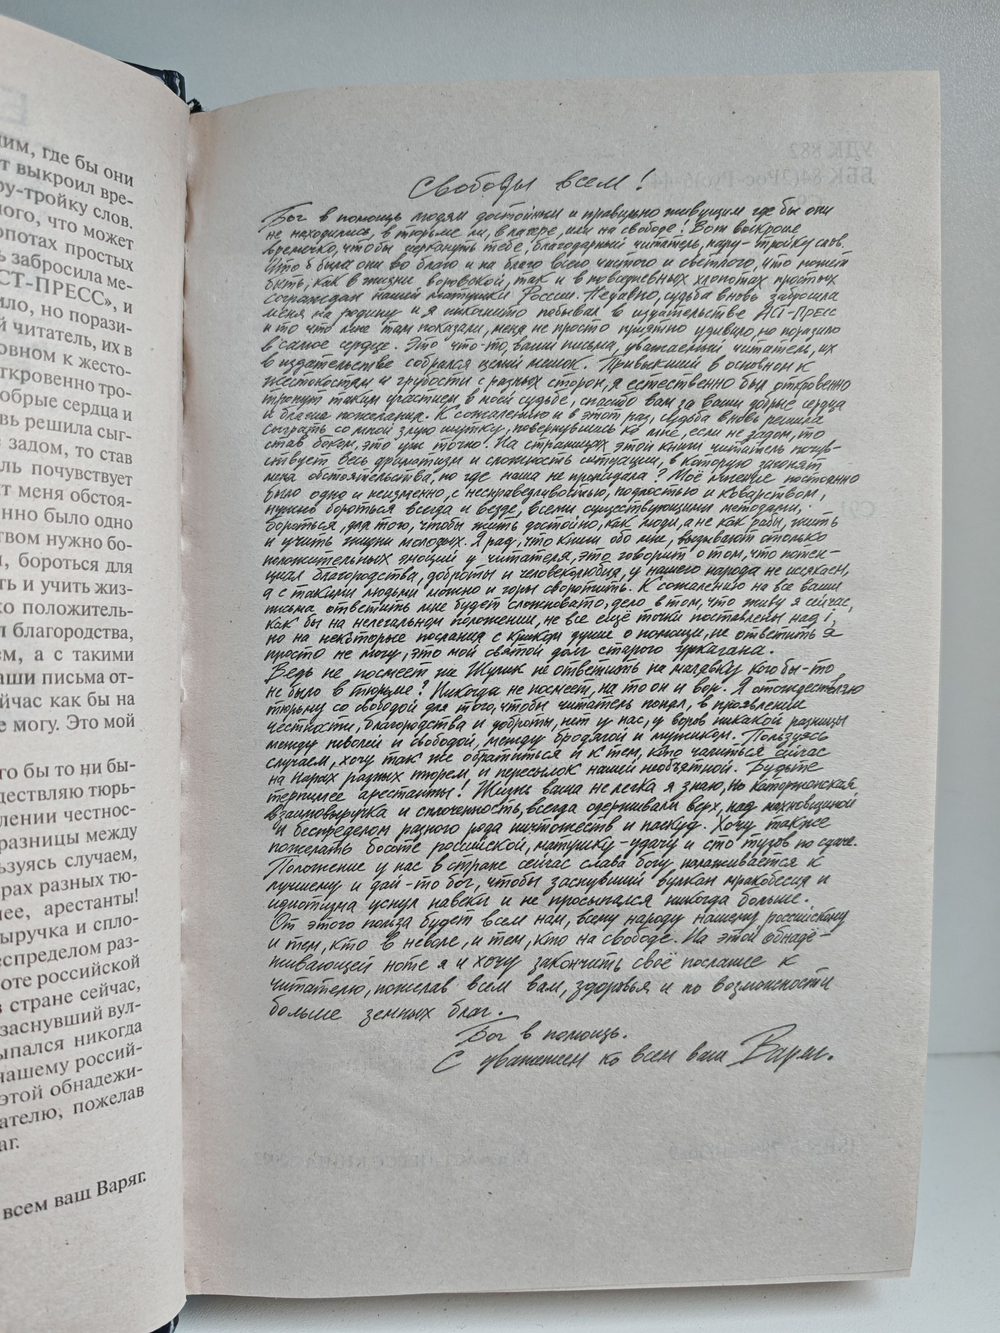 Е
ним, где бы они
т выкроил вре-
ру-тройку слов.
ного, что может
опотах простых
ь забросила ме-
СТ-ПРЕСС», и
ило, но порази-
й читатель, их в
овном к жесто-
ткровенно тро-
обрые сердца и
вь решила сыг-
е задом, то став
ль почувствует
т меня обстоя-
енно было одно
твом нужно бо-
, бороться для
ть и учить жиз-
ко положитель-
л благородства,
зм, а с такими
аши письма от-
ейчас как бы на
е могу. Это мой
го бы то ни бы-
дествляю тюрь-
лении честнос-
разницы между
льзуясь случаем,
рах разных тю-
нее, арестанты!
выручка и спло-
еспределом раз-
оте российской
в стране сейчас,
заснувший вул-
ыпался никогда
нашему россий-
этой обнадежи-
ателю, пожелав
аг.
всем ваш Варяг.
УДК 882
ББК 84(2Рос-Рус)6-44
Свободы всем!
Бог в помощь людям достойным и правильно живущим где бы они
не находились, в тюрьме ли, в лагере, или на свободе! Вот выкроил
времечко, чтобы черкнуть тебе, благодарный читатель, пару-тройку слов.
Что б были они во благо и на благо всего чистого и светлого, что может
быть, как в жизни воровской, так и в повседневных хлопотах простых
сограждан нашей матушки России. Недавно, судьба вновь забросила
меня на родину и я инкогнито побывал в издательстве АСТ-ПРЕСС
и то что мне там показали, меня не просто приятно удивило, но поразило
в самое сердце. Это что-то, ваши письма, уважаемый читатель, их
в издательстве собрался целый мешок. Привыкший в основном к
жестокостям и грубости с разных сторон, я естественно был откровенно
тронут таким участием в моей судьбе, спасибо вам за ваши добрые сердца
и благие пожелания. К сожалению и в этот раз, судьба вновь решила
сыграть со мной злую шутку, повернувшись ко мне, если не задом, то
став боком, это уж точно! На страницах этой книги читатель почув-
ствует весь драматизм и сложность ситуации, в которую загонят
меня обстоятельства, но где наша не пропадала? Моё мнение постоянно
было одно и неизменно, с несправедливостью, подлостью и коварством,
нужно бороться всегда и везде, всеми существующими методами,
бороться, для того, чтобы жить достойно, как люди, а не как рабы, жить
и учить жизни молодых. Я рад, что книги обо мне, вызывают столько
положительных эмоций у читателя, это говорит о том, что потен-
циал благородства, доброты и человеколюбия, у нашего народа не иссякаем,
а с такими людьми можно и горы своротить. К сожалению на все ваши
письма, ответить мне будет сложновато, дело в том, что живу я сейчас,
как бы на нелегальном положении, не все ещё точки поставлены над i,
но на некоторые послания с криком души о помощи, не ответить я
просто не могу, это мой святой долг старого уркагана.
Ведь не посмеет же Жулик не ответить на малевку кого бы-то
не было в тюрьме? Никогда не посмеет, на то он и вор. Я отождествляю
тюрьму со свободой для того, чтобы читатель понял, в проявлении
честности, благородства и доброты, нет у нас, у воров никакой разницы
между неволей и свободой, между бродягой и мужиком. Пользуясь
случаем, хочу так же обратиться и к тем, кто чалиться сейчас
на нарах разных тюрем, и пересылок нашей необъятной. Будьте
терпимее арестанты! Жизнь ваша не легка я знаю, но каторжанская,
взаимовыручка и сплоченность, всегда одерживали верх, над махновщиной
и беспределом разного рода ничтожеств и паскуд. Хочу также
пожелать босоте российской, матушку-удачу и сто тузов по сдаче.
Положение у нас в стране сейчас слава богу, налаживается к
лучшему и дай-то бог, чтобы заснувший вулкан мракобесия и
идиотизма уснул навеки и не просыпался никогда больше.
От этого польза будет всем нам, всему народу нашему российскому
и тем, кто в неволе, и тем, кто на свободе. На этой обнадё-
живающей ноте я и хочу закончить своё послание к
читателю, пожелав всем вам, здоровья и по возможности
больше земных благ.
Бог в помощь.
С уважением ко всем ваш Варяг.